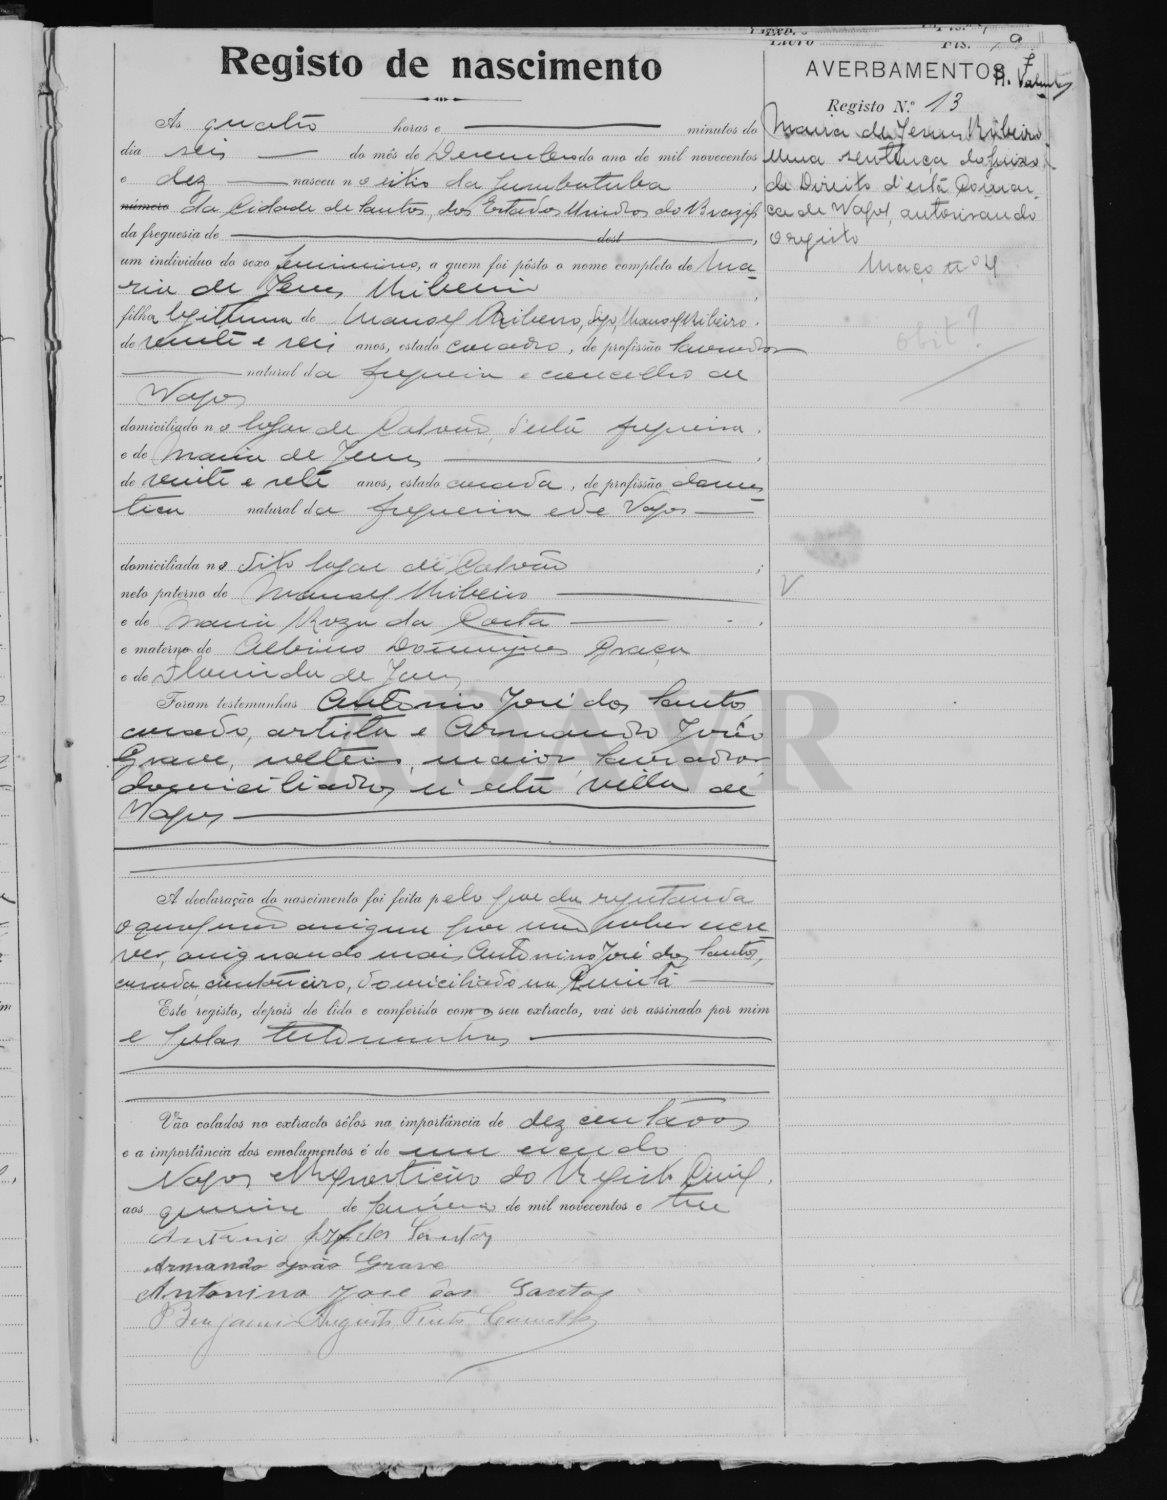 Livro Fls. 9
Registo de nascimento
AVERBAMENTOS
Registo N.º 13
As quatro horas e minutos do
dia seis do mês de Dezembro do ano de mil novecentos
e dez nasceu no sitio da
número da Cidade de Santos, dos Estados Unidos do Brazil
da freguesia de dest ,
um individuo do sexo feminino, a quem foi pôsto o nome completo de Ma-
ria de Jesus Ribeiro
filha legitima de Manoel Ribeiro, digo, Manoel Ribeiro.
de vinte e seis anos, estado casado, de profissão lavrador
natural da freguesia e concelho de
Vagos
domiciliado no logar de Calvão, d'esta freguesia.
e de Maria de Jesus
de vinte e sete anos, estado casada, de profissão domes-
tica natural da freguesia e de Vagos
domiciliada no dito logar de Calvão ;
neto paterno de Manoel Ribeiro
e de Maria Roza da Costa
e materno de Albino Domingues Graça
e de Florinda de Jesus
Foram testemunhas Antonio José dos Santos,
casado, artista e Armando João
Grave, solteiro, maior, lavrador
domiciliados n'esta villa de
Vagos
A declaração do nascimento foi feita pelo pae da registanda
o qual não assigna por não saber escre-
ver, assignando mais Antonino José dos Santos,
casado, domiciliado na Quintã
Este registo, depois de lido e conferido com o seu extracto, vai ser assinado por mim
e pelas testemunhas
Vão colados no extracto sêlos na importância de dez centavos
e a importância dos emolumentos é de um escudo
Vagos e Repartição do Registo Civil,
aos quinze de Janeiro de mil novecentos e
Antonio José dos Santos
Armando João Grave
Antonino Jose dos Santos
Benjamim Augusto Pinto
Maria de Jesus Ribeiro
Uma sentença do Juizo
de Direito d'esta Comar-
ca de Vagos, autorisando
o registo
Maço nº 4
obit?
ADAVR